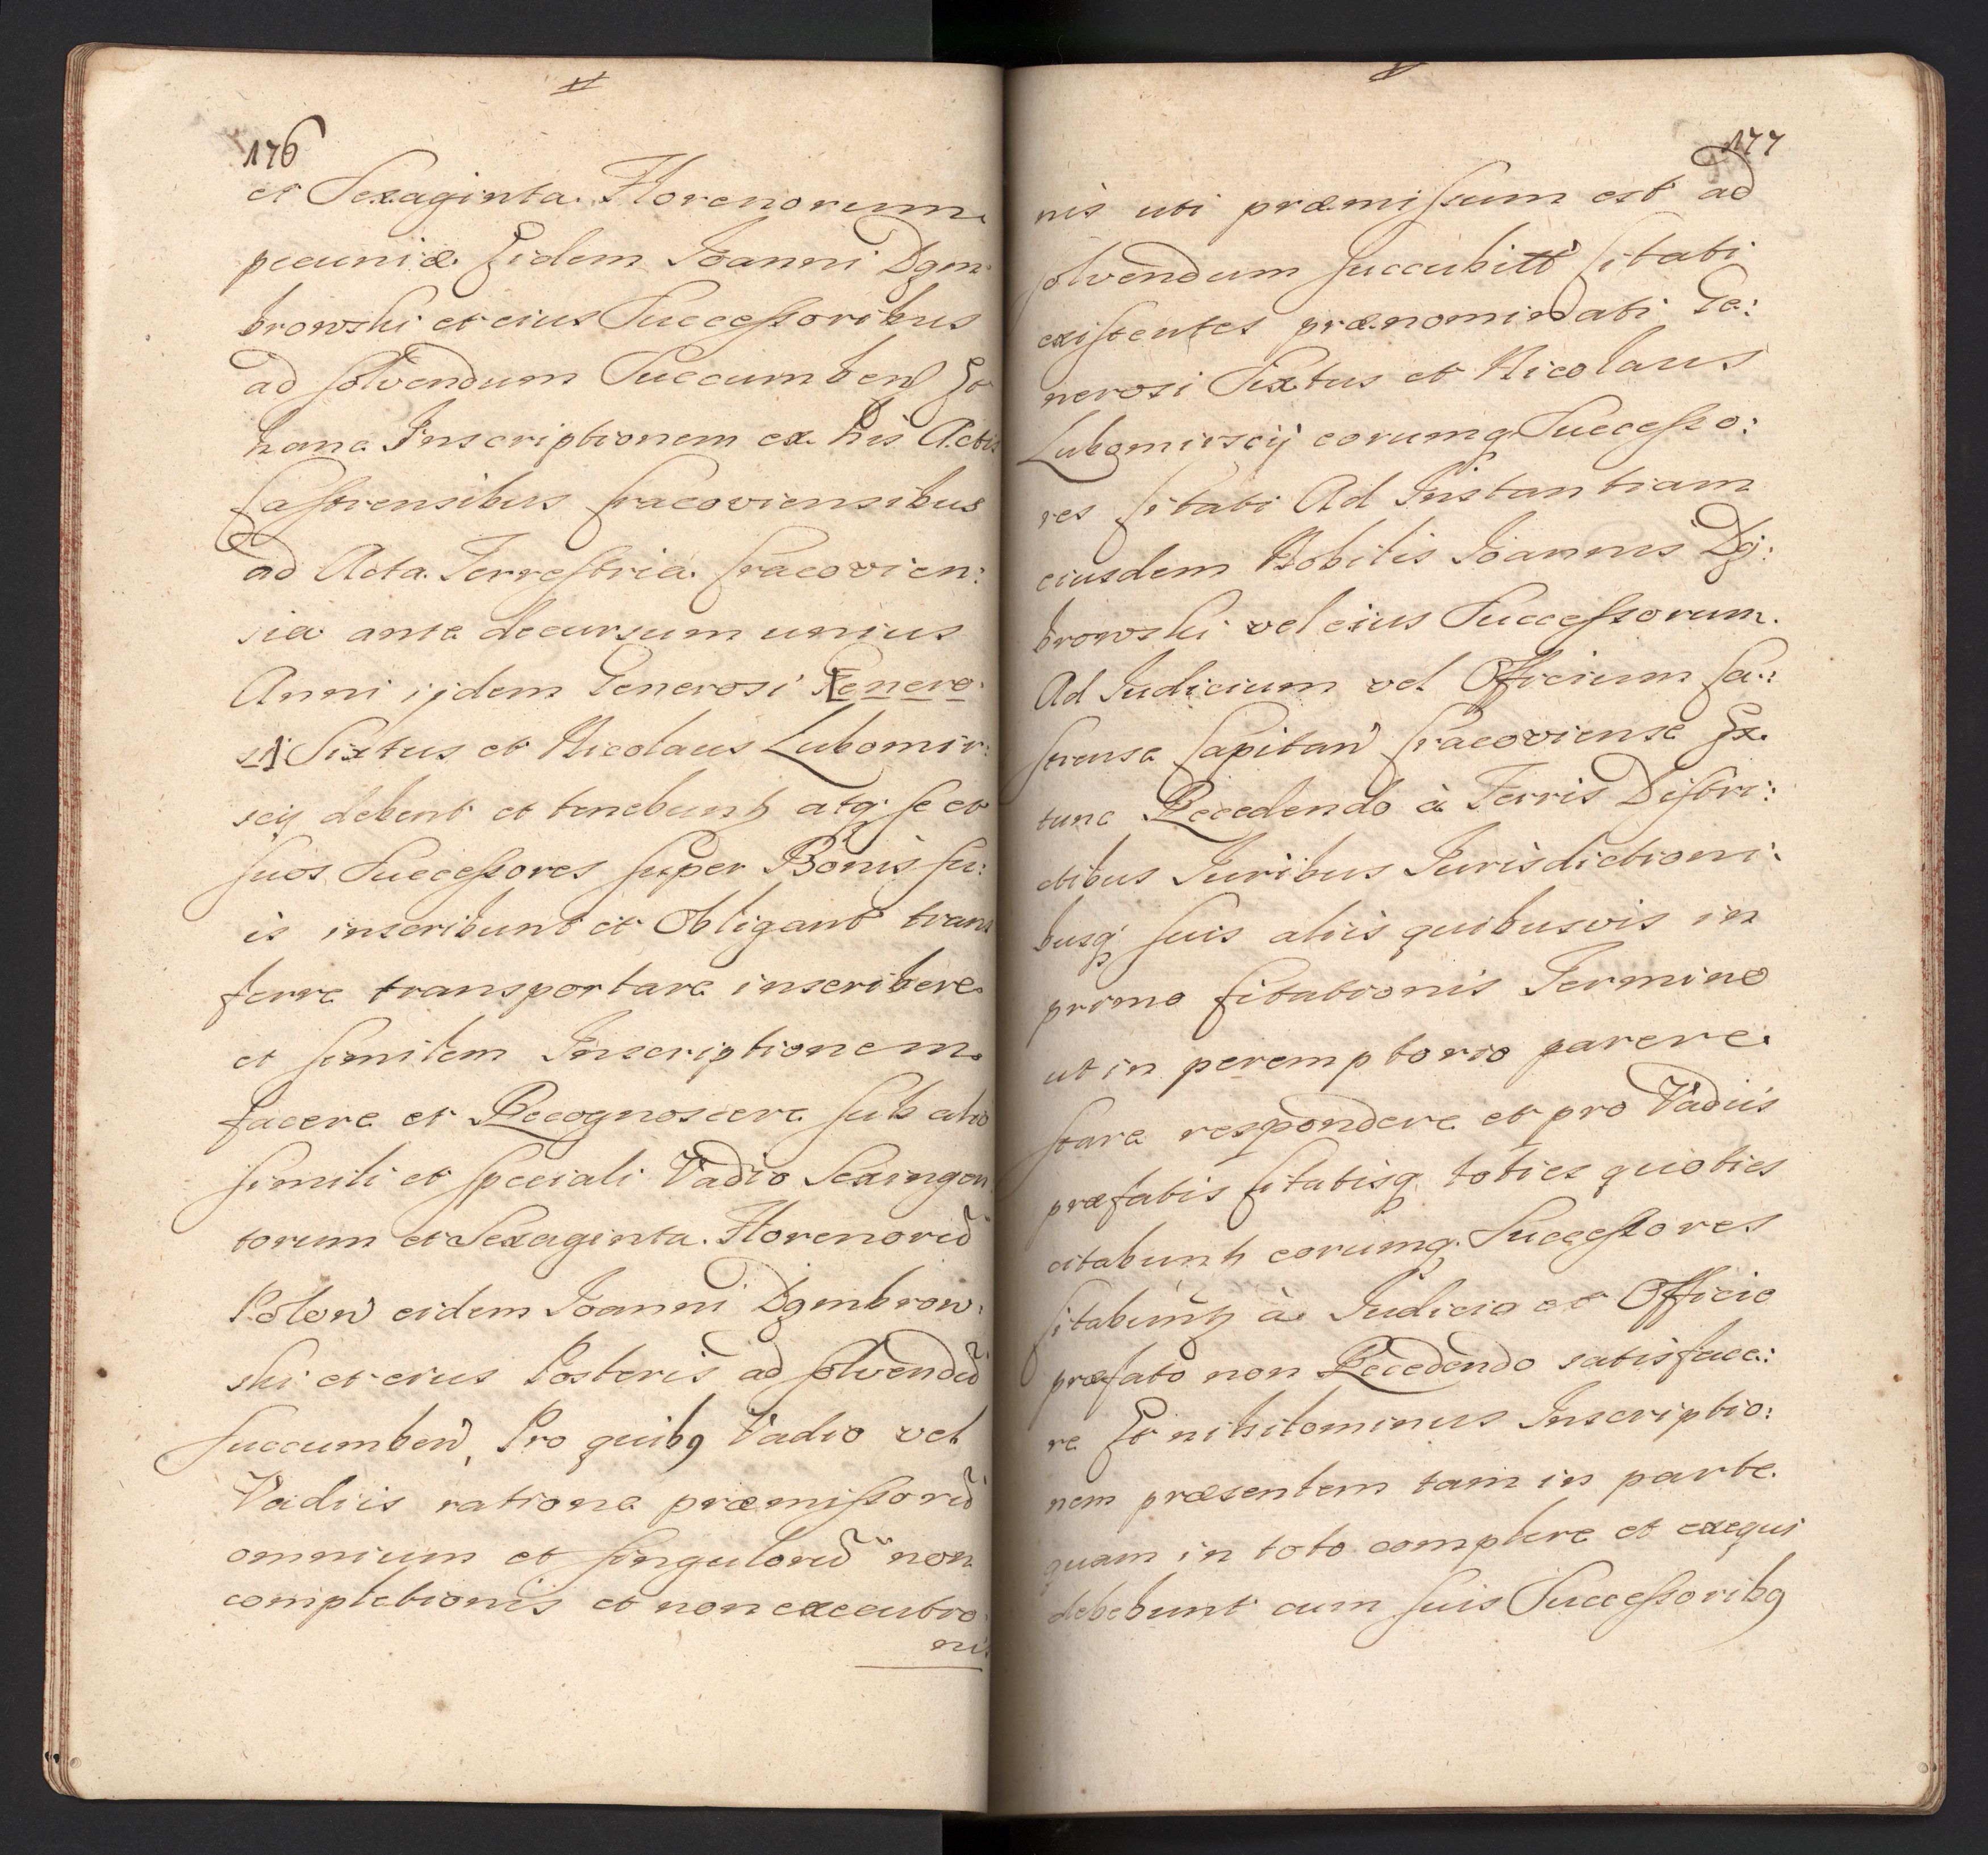 176
et Sexaginta Florenorum
pecuniæ Eidem Joanni Dgm
browski et eius Successoribus
ad solvendum Succumben Et
hanc Inscriptionem ex his Actis
Castrensibus Cracoviensibus
ad Acta Terrestria Cracovien:
sia ante decursum unius
Anni ijdem Generosi Genero
si Sixtus et Nicolaus Lubomir:
scij debent et tenebuntr atq se et
suos Successores super Bonis su:
is inscribunt et Obligant trans
ferre transportare inscribere
et similem Inscriptionem
facere et Recognoscere sub alio
simili et speciali Vadio Sexingen
torum et Sexaginta Florenorũ
Polon eidem Joanni Dgmbrow:
ski et eius Posteris ad solvendũ
succumben, Pro quibq Vadio vel
Vadiis ratione præmissorũ
omnium et singulorũ non
completionis et non executio
nis
177
nis uti præmissum est ad
solvendum succubitt Citati
existentes prænominati Ge:
nerosi Sixtus et Nicolaus
Lubomirscij eorumq Successo:
res Citati Ad Instantiam
eiusdem Nobilis Joannis Dg:
browski vel eius Successorum
Ad Iudicium vel Officium Ca:
strense Capitan Cracoviense Ex
tunc Recedendo à Terris Distri:
ctibus Iuribus Iurisdictioni:
busq suis aliis quibusvis in
primo Citationis Termino
ut in peremptorio parere
stare respondere et pro Vadiis
præfatis Citatisq toties quoties
citabuntr eorumq Successores
Citabuntr à Iudicio et Officio
præfato non Recedendo satisface:
re Et nihilominus Inscriptio:
nem præsentem tam in parte
quam in toto complere et exequi
debebunt cum suis Successoribq